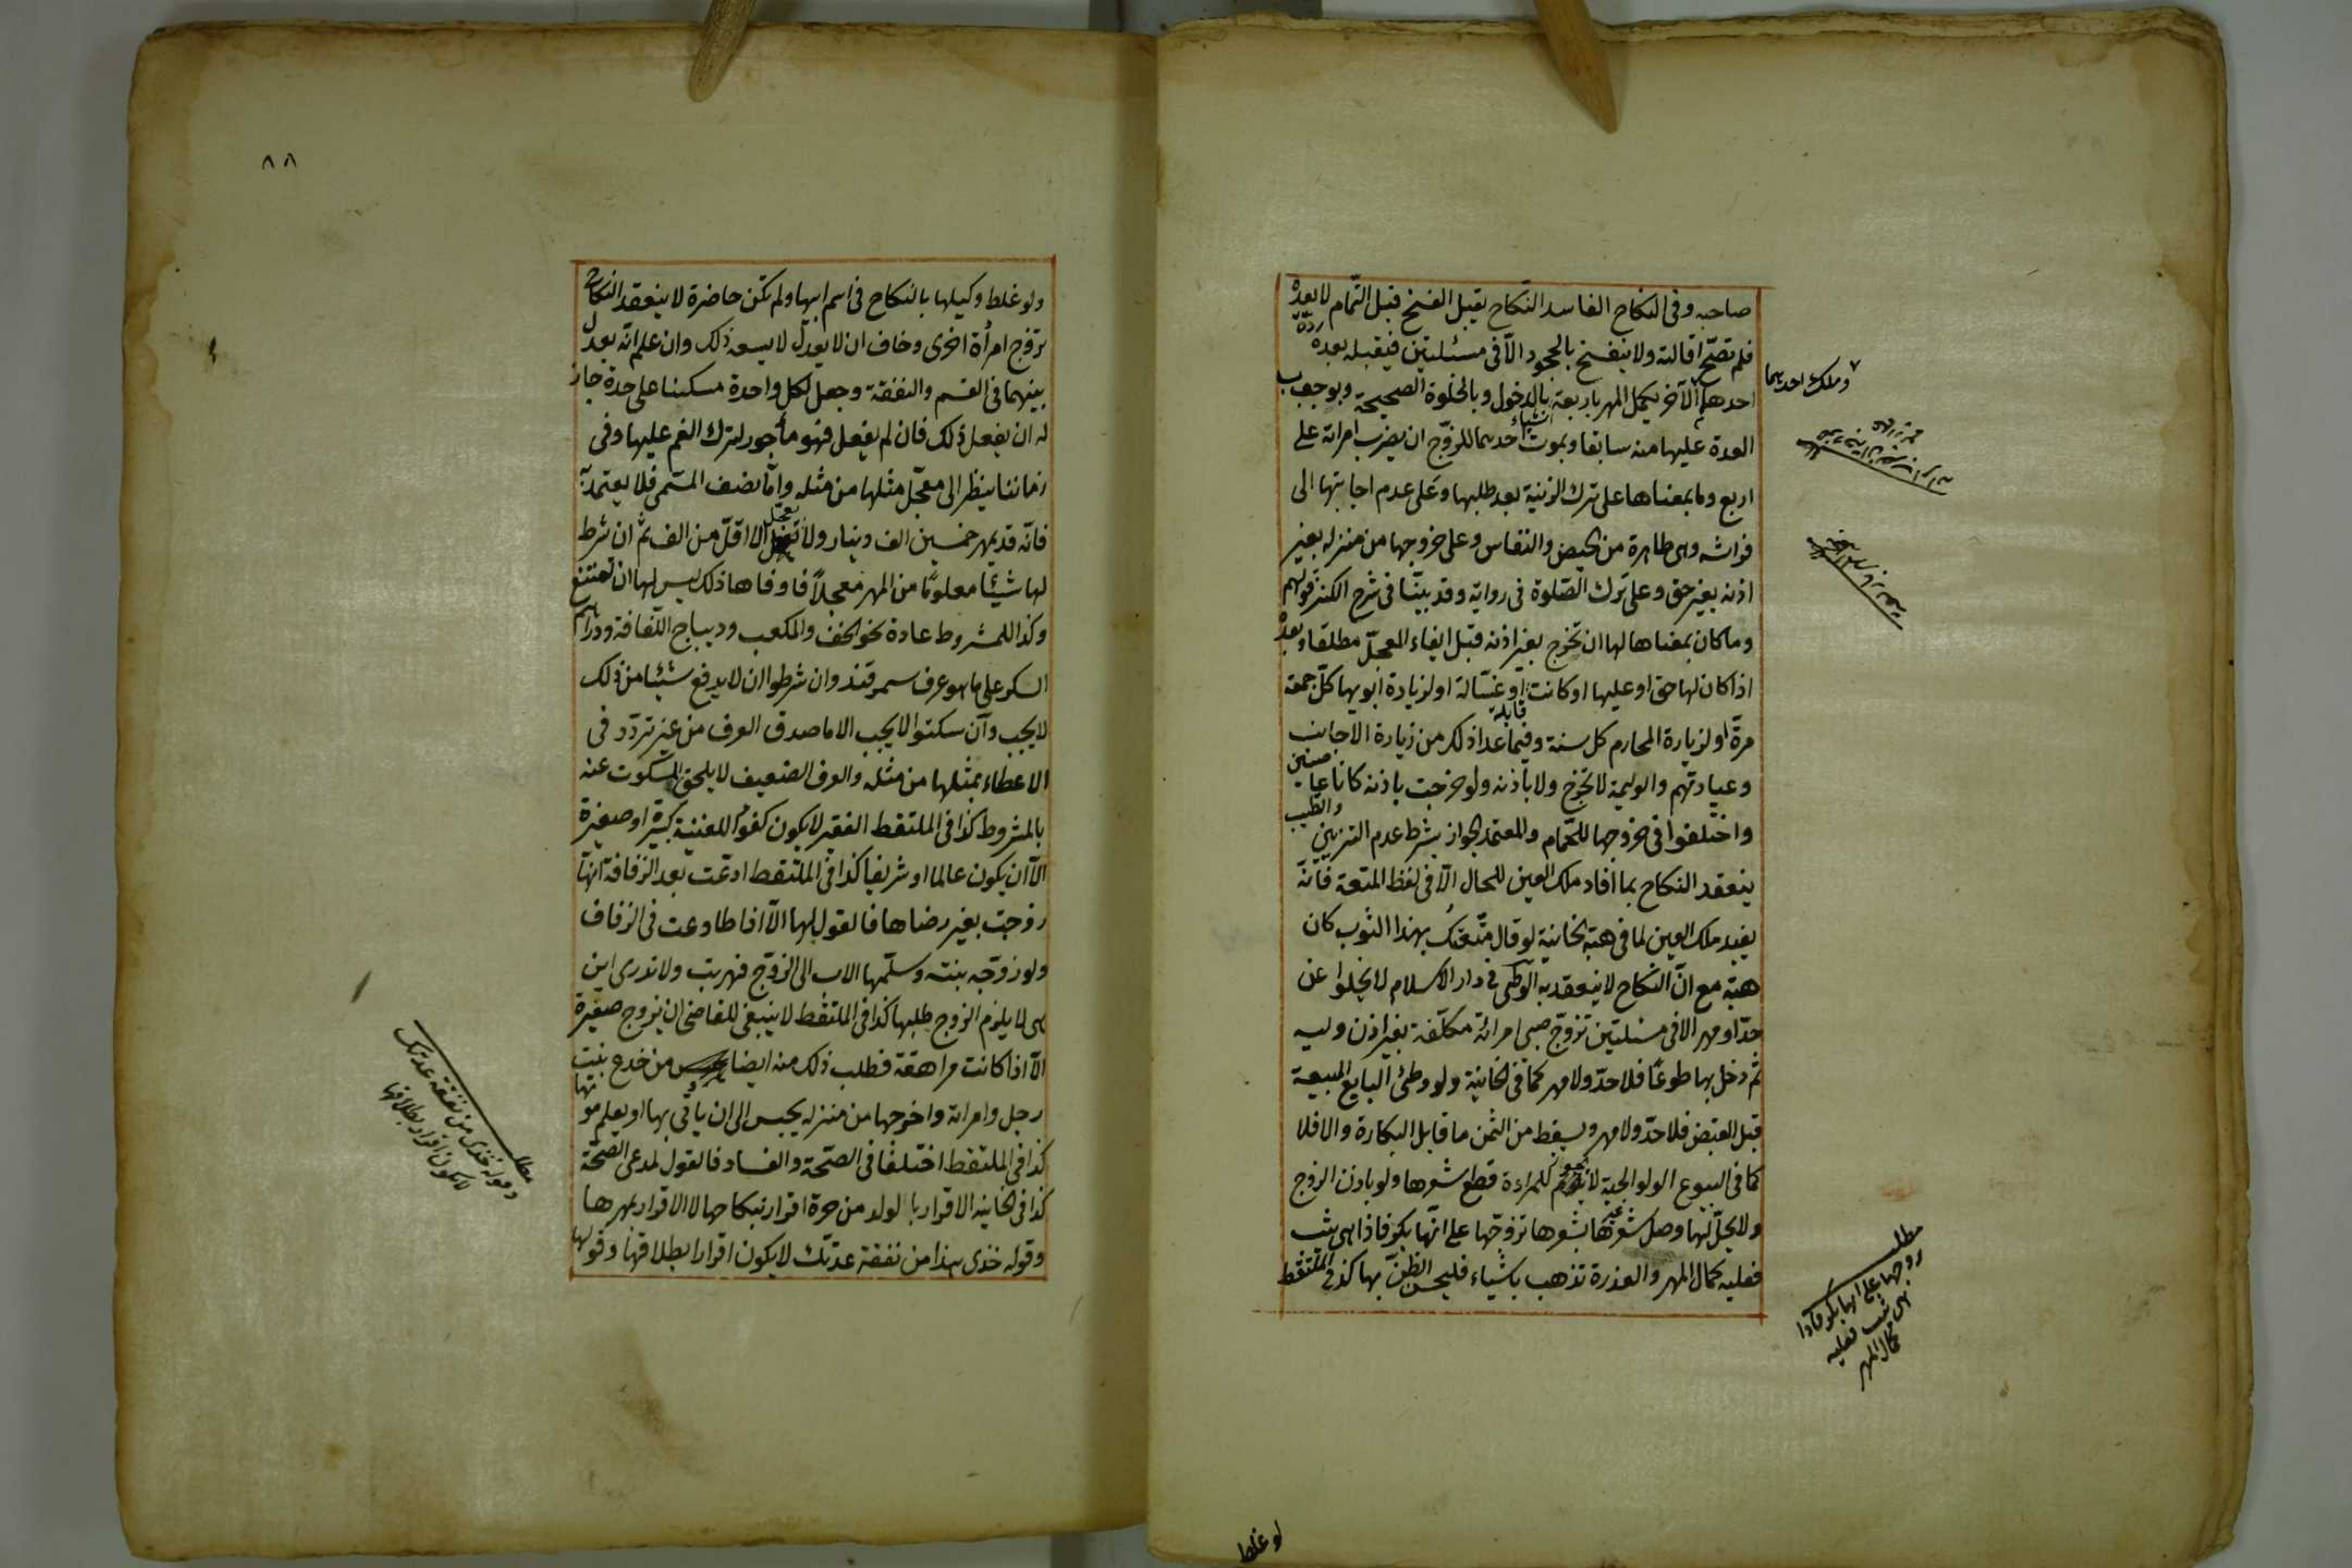 صاحبه وفى النكاح الفاسد النكاح يقبل الفسخ قبل التمام لا بعده
فلم تصح اقالته ولا ينفسخ بالجحود الا فى مسئلتين فيقبله بعده ردة
احدهما الآخر يكمل المهر باربعة اشياء بالدخول وبالخلوة الصحيحة وبوجوب
وملك احدهما
العدة عليها منه سابقا وبموت احدهما للزوج ان يضرب امراته على
اربع وما بمعناها على ترك الزينة بعد طلبها وعلى عدم اجابتها الى
فراشه وهى طاهرة من الحيض والنفاس وعلى خروجها من منزله بغير
اذنه بغير حق وعلى ترك الصلوة فى رواية وقد بينا فى شرح الكنز قولهم
وما كان بمعناها لها ان تخرج بغير اذنه قبل ايفاء المعجل مطلقا وبعده
اذا كان لها حق او عليها او كانت قابلة او غسالة او لزيارة ابويها كل جمعة
مرة او لزيارة المحارم كل سنة وفيما عدا ذلك من زيارة الاجانب
وعيادتهم والوليمة لا تخرج ولا باذنه ولو خرجت باذنه كانا عاصيين
واختلفوا فى خروجها للحمام والمعتمد الجواز بشرط عدم التزيين والطيب
ينعقد النكاح بما افاد ملك العين للحال الا فى لفظ المتعة فانه
يفيد ملك العين لما فى هبة الخانية لو قال متعتك بهذا الثوب كان
هبة مع ان النكاح لا ينعقد به الوطى فى دار الاسلام لا يخلوا عن
حد او مهر الا فى مسئلتين تزوج صبى امرائة مكلفة بغير اذن وليه
ثم دخل بها طوعا فلا حد ولا مهر كما فى الخانية ولو وطئ البايع المبيعة
قبل القبض فلا حد ولا مهر ويسقط من الثمن ما قابل البكارة والا فلا
كما فى البيوع الولوالجية لا يجوز للمراءة قطع شعرها ولو باذن الزوج
ولا يحل لها وصل شعر غيرها بشعرها تزوجها على انها بكر فاذا هى ثيب
فعليه كمال المهر والعذرة تذهب باشياء فليحسن الظن بها كذ فى الملتقط
مطلب
زوجها على انها بكر فاذا
هى ثيب فعليه
كمال المهر
لو غلط
٨٨
ولو غلط وكيلها بالنكاح فى اسم ابيها ولم تكن حاضرة لا ينعقد النكاح
تزوج امرأة اخرى وخاف ان لا يعدل لا يسعه ذلك وان علم انه يعدل
بينهما فى القسم والنفقة وجعل لكل واحدة مسكنا على حدة جاز
له ان يفعل ذلك فان لم يفعل فهو مأجور لترك الغم عليها وفى
زماننا ينظر الى معجل مثلها من مثله واما نصف المسمى فلا يعتمد
فانه قد يمهر خمسين الف دينار ولا يعجل الا اقل من الف ثم ان شرط
لها شيئا معلوما من المهر معجلا فاوفاها ذلك ليس لها ان تمتنع
وكذا المشروط عادة نحو الخف والمكعب وديباج اللفافة ودراهم
السكر على ما هو عرف سمرقند وان شرطوا ان لا يدفع شيئا من ذلك
لا يجب وان سكتوا لا يجب الا ما صدق العرف من غير تردد فى
الاعطاء بمثلها من مثله والعرف الضعيف لا يلحق المسكوت عنه
بالمشروط كذا فى الملتقط الفقير لا يكون كفوا للغنية كبيرة او صغيرة
الا ان يكون عالما او شريفا كذا فى الملتقط ادعت بعد الزفافة انها
زوجت بغير رضاها فالقول لها الا اذا طاوعت فى الزفاف
ولو زوجه بنته وسلمها الاب الى الزوج فهربت ولا تدرى اين
هى لا يلزم الزوج طلبها كذا فى الملتقط لا ينبغى للقاضى ان يزوج صغيرة
الا اذا كانت مراهقة فطلب ذلك منه ايضا من خدع بنت
رجل وامراته واخرجها من منزله يحبس الى ان يأتى بها او يعلم موتها
كذا فى الملتقط اختلفا فى الصحة والفساد فالقول لمدعى الصحة
كذا فى الخانيه الاقرار بالولد من حرة اقرار بنكاحها لا الاقرار بمهرها
وقوله خذى هذا من نفقة عدتك لا يكون اقرارا بطلاقها وقولها
مطلب
وقوله خذى من نفقة عدتك
لا يكون اقرارا بطلاقها